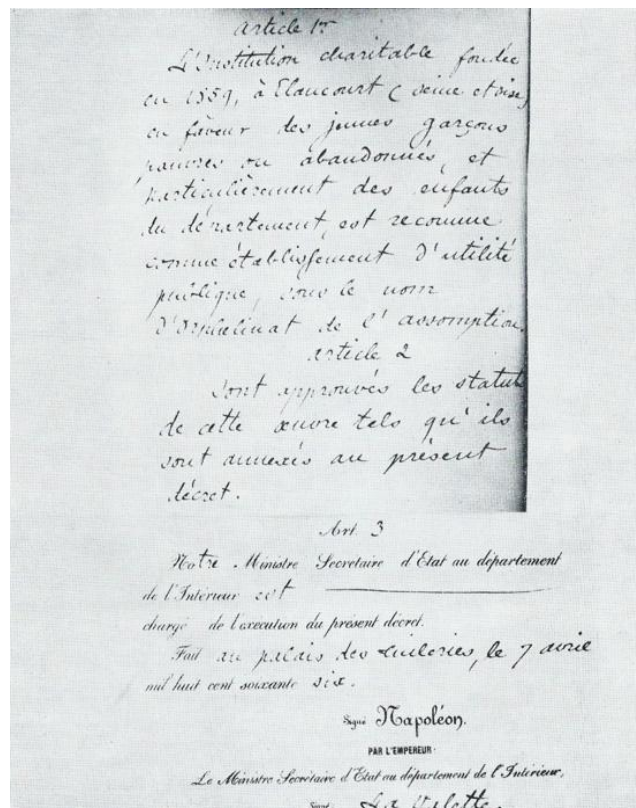 article 1er
L'Institution charitable fondée
en 1859, à Elancourt (seine et oise)
en faveur des jeunes garçons
pauvres ou abandonnés, et
particulièrement des enfants
du département, est reconnue
comme établissement d'utilité
publique, sous le nom
d'orphelinat de l'assomption.
article 2
sont approuvés les statuts
de cette œuvre tels qu'ils
sont annexés au présent
décret.
Art. 3
Notre Ministre Secrétaire d'Etat au département
de l'Intérieur est
chargé de l'execution du présent décret.
Fait au palais des tuileries, le 7 avril
mil huit cent soixante six.
Signé Napoléon.
PAR L'EMPEREUR:
Le Ministre Secrétaire d'Etat au département de l'Intérieur,
Signé: La Valette.